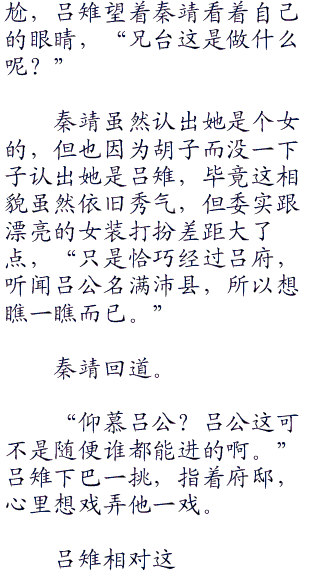 尬，吕雉望着秦靖看着自己
的眼睛，“兄台这是做什么
呢？”
秦靖虽然认出她是个女
的，但也因为胡子而没一下
子认出她是吕雉，毕竟这相
貌虽然依旧秀气，但委实跟
漂亮的女装打扮差距大了
点，“只是恰巧经过吕府，
听闻吕公名满沛县，所以想
瞧一瞧而已。”
秦靖回道。
“仰慕吕公？吕公这可
不是随便谁都能进的啊。”
吕雉下巴一挑，指着府邸，
心里想戏弄他一戏。
吕雉相对这